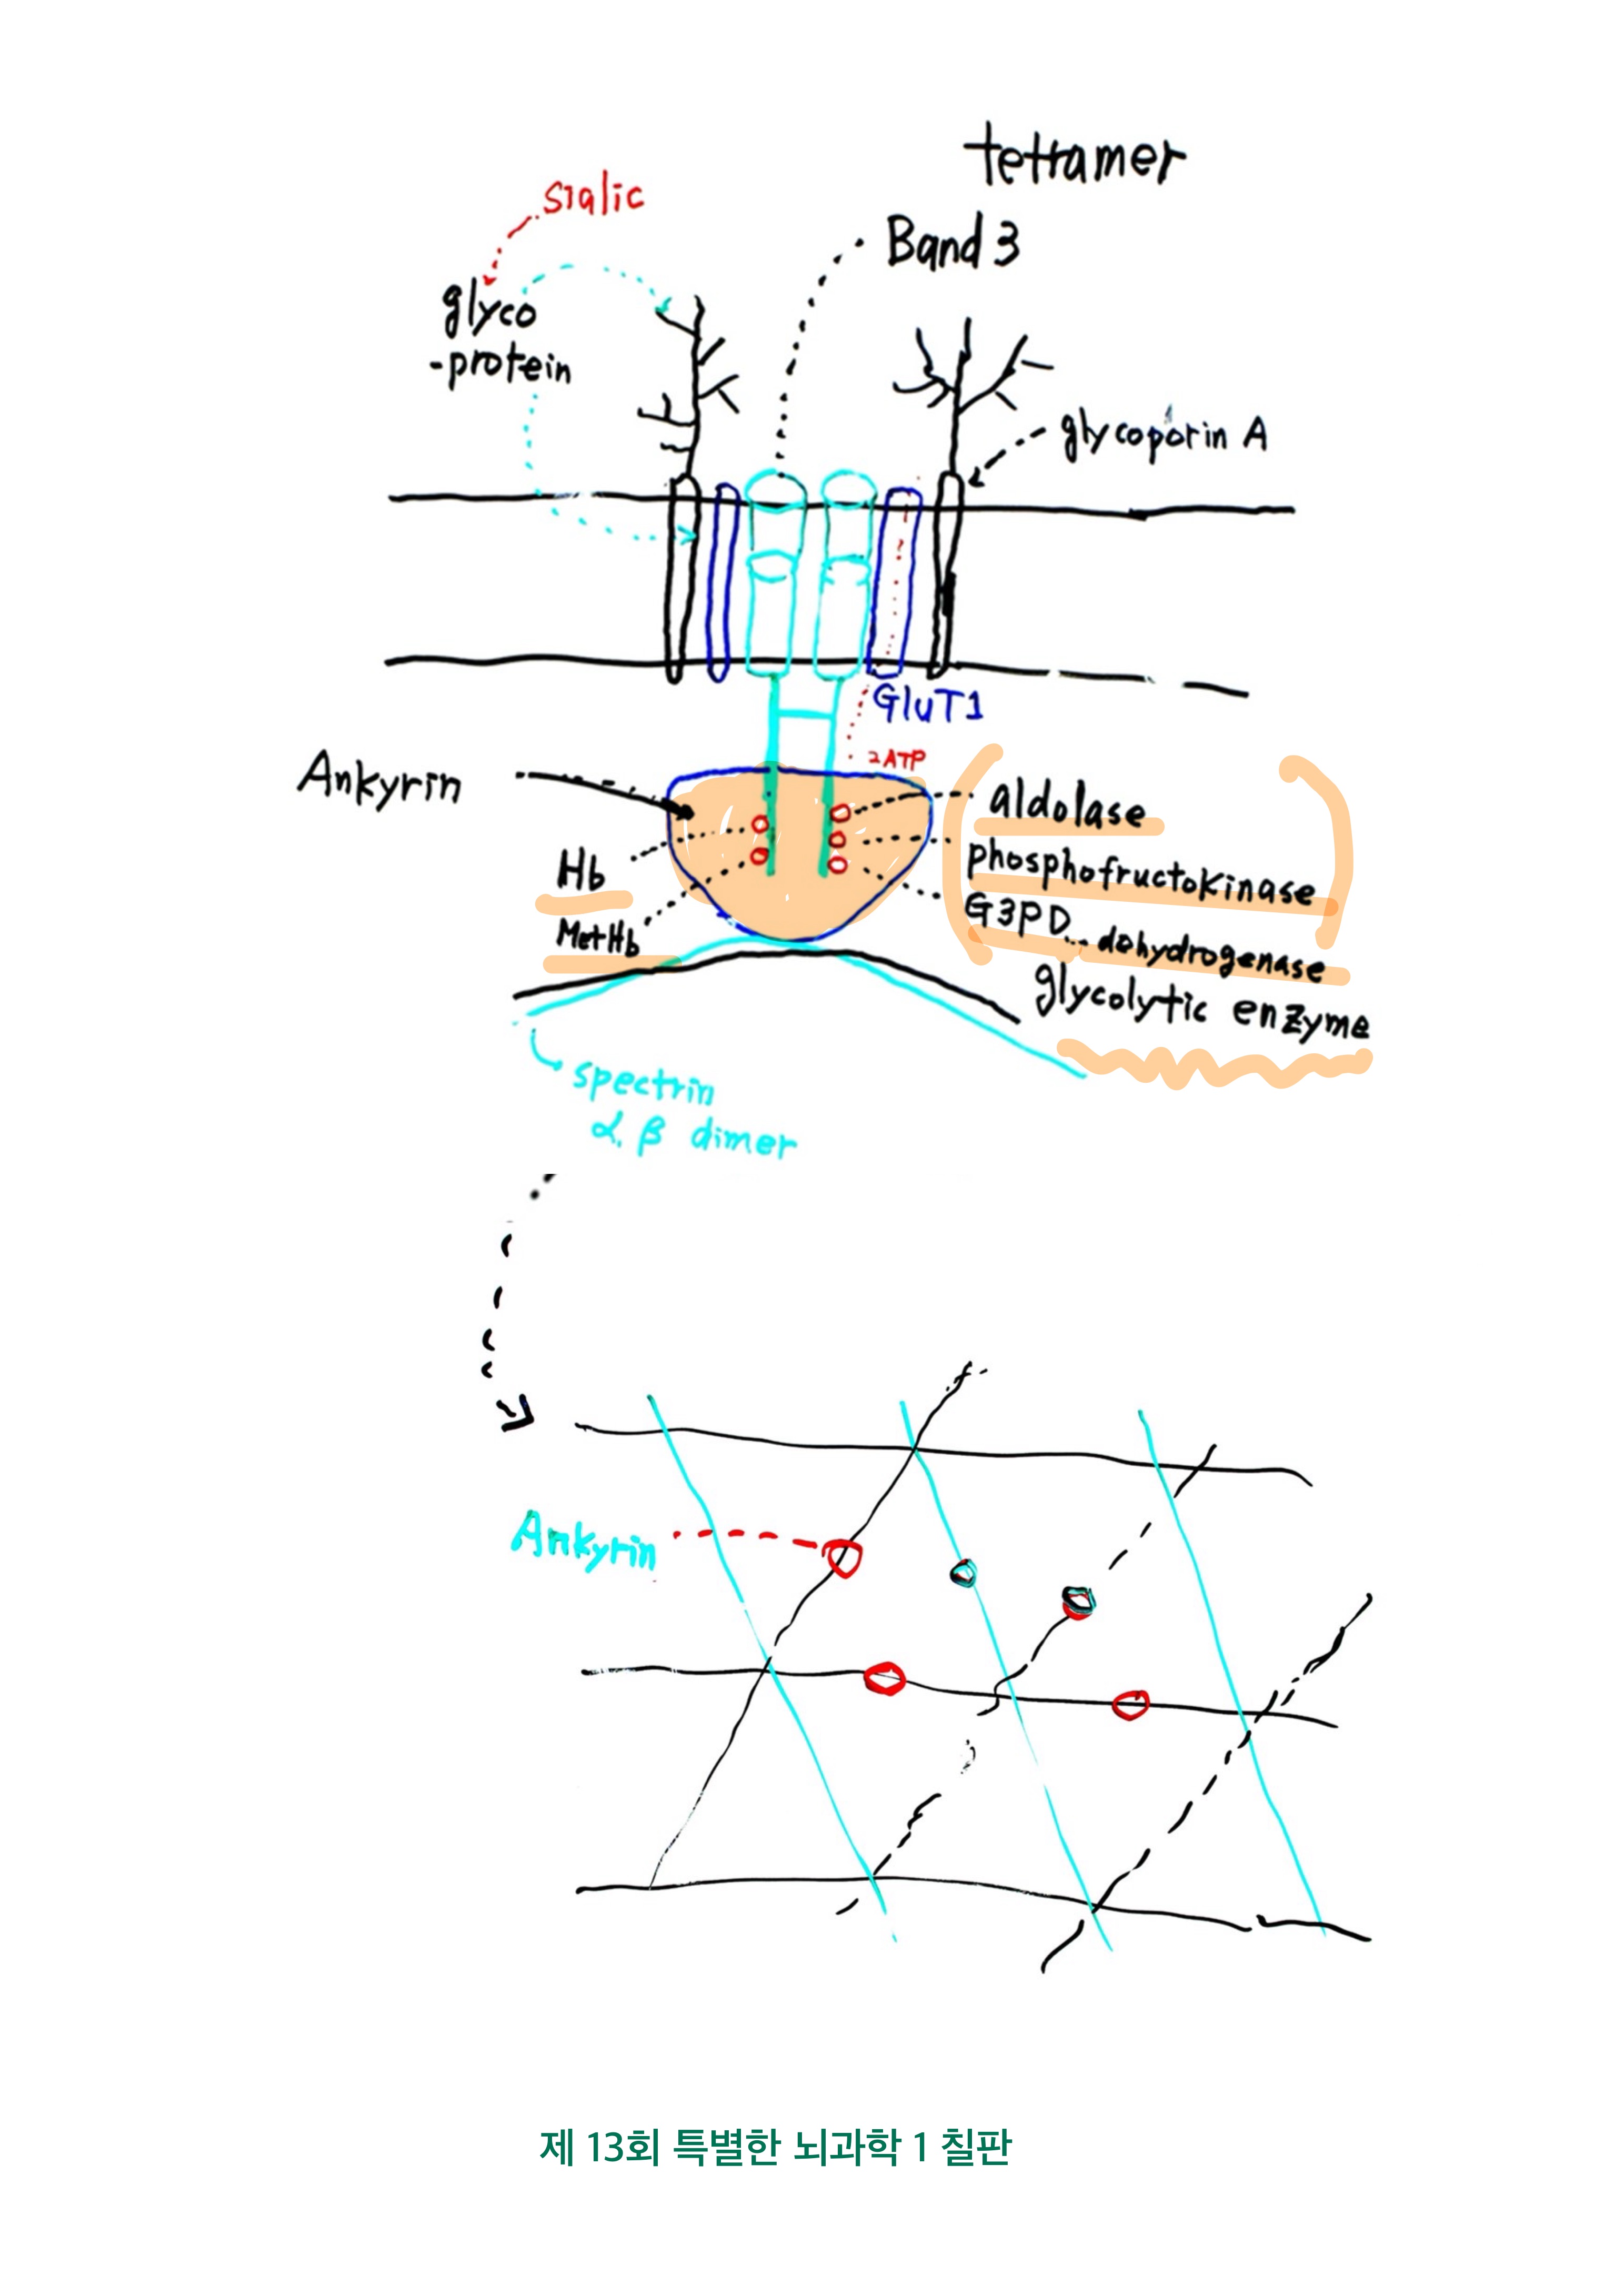 tetramer
sialic
Band 3
glyco
-protein
glycoporin A
GluT1
2ATP
Ankyrin
aldolase
phosphofructokinase
Hb
G3PD
MetHb
dehydrogenase
glycolytic enzyme
spectrin
α, β dimer
Ankyrin
제 13회 특별한 뇌과학 1 칠판